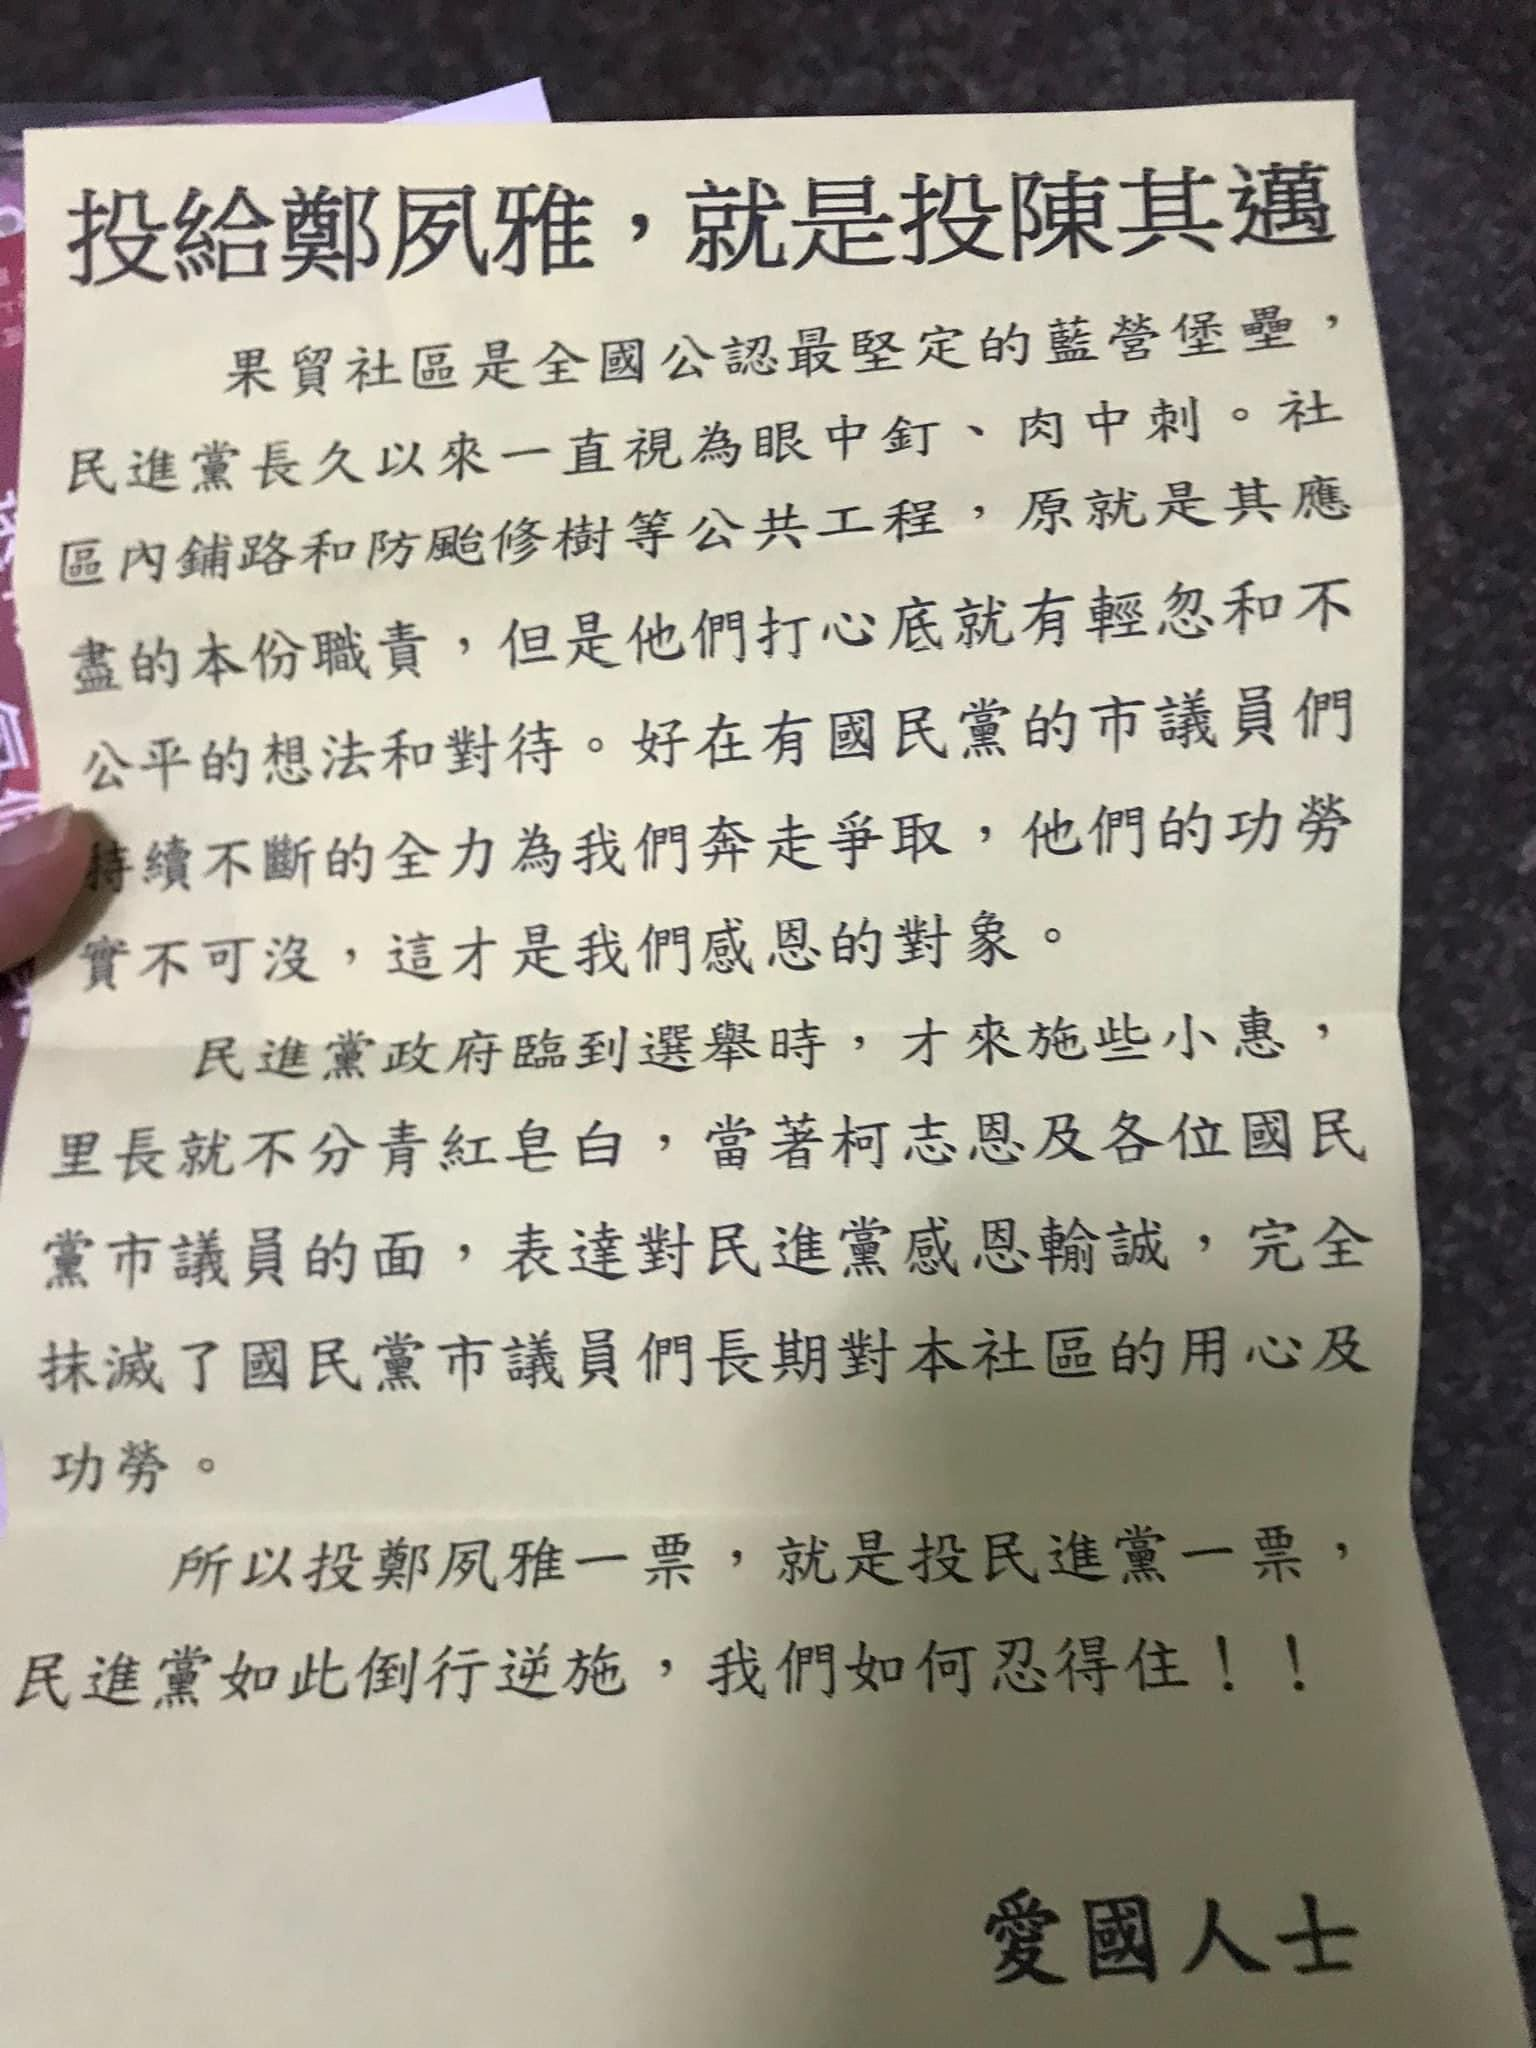 投給鄭夙雅，就是投陳其邁
果貿社區是全國公認最堅定的藍營堡壘，
民進黨長久以來一直視為眼中釘、肉中刺。社
區內鋪路和防颱修樹等公共工程，原就是其應
盡的本份職責，但是他們打心底就有輕忽和不
公平的想法和對待。好在有國民黨的市議員們
持續不斷的全力為我們奔走爭取，他們的功勞
實不可沒，這才是我們感恩的對象。
民進黨政府臨到選舉時，才來施些小惠，
里長就不分青紅皂白，當著柯志恩及各位國民
黨市議員的面，表達對民進黨感恩輸誠，完全
抹滅了國民黨市議員們長期對本社區的用心及
功勞。
所以投鄭夙雅一票，就是投民進黨一票，
民進黨如此倒行逆施，我們如何忍得住！！
愛國人士